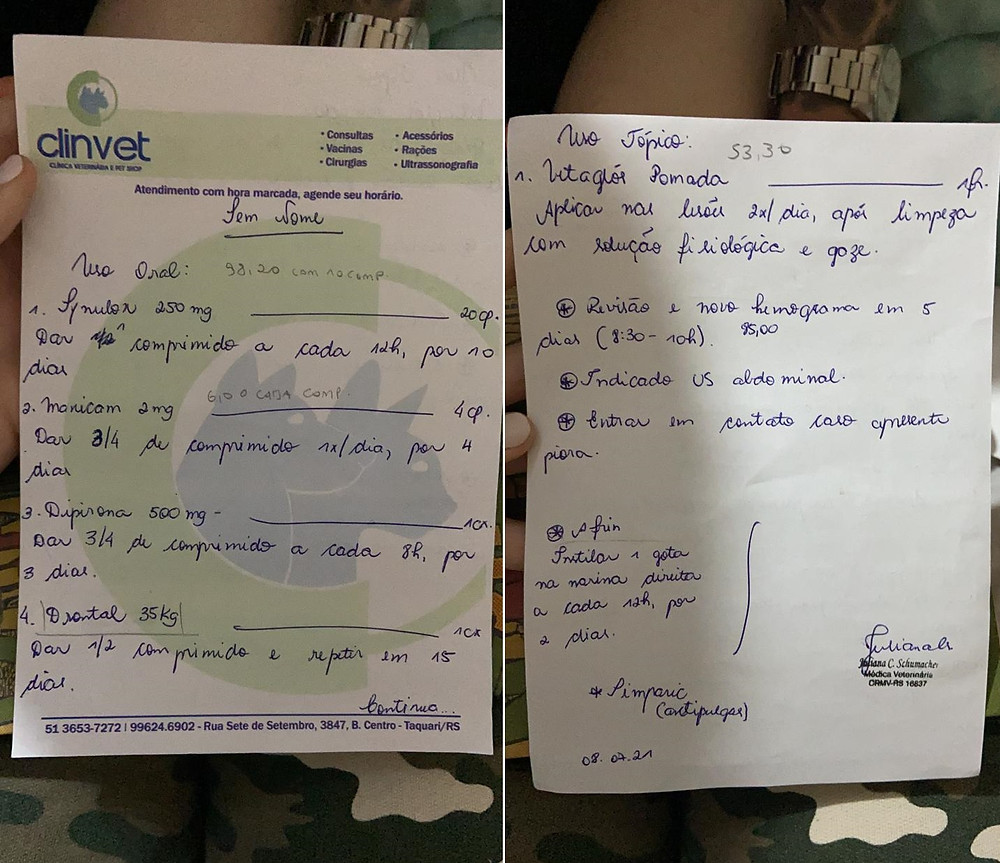 clinvet
CLÍNICA VETERINÁRIA E PET SHOP
• Consultas
• Vacinas
• Cirurgias
• Acessórios
• Rações
• Ultrassonografia
Atendimento com hora marcada, agende seu horário.
Sem Nome
Uso Oral: 98,20 com 10 comp.
1. Synulox 250 mg 20 cp.
Dar 1 comprimido a cada 12h, por 10
dias
2. Manicam 2mg 6,00 CADA COMP. 4 cp.
Dar 3/4 de comprimido 1x/dia, por 4
dias
3. Dipirona 500 mg - 1cx.
Dar 3/4 de comprimido a cada 8h, por
3 dias.
4. Drontal 35kg 1cx
Dar 1/2 comprimido e repetir em 15
dias.
Continua...
51 3653-7272 | 99624.6902 - Rua Sete de Setembro, 3847, B. Centro - Taquari/RS
Uso Tópico: 53,30
1. Vetaglós Pomada 1fr.
Aplicar nas lesões 2x/dia, após limpeza
com solução fisiológica e gaze.
* Revisão e novo hemograma em 5
dias (8:30 - 10h). 95,00
* Indicado US abdominal.
* Entrar em contato caso apresente
piora.
* Afrin
Instilar 1 gota
na narina direita
a cada 12h, por
2 dias.
Juliana C. Schumacher
Médica Veterinária
CRMV-RS 16837
* Simparic
(antipulgas)
08.07.21